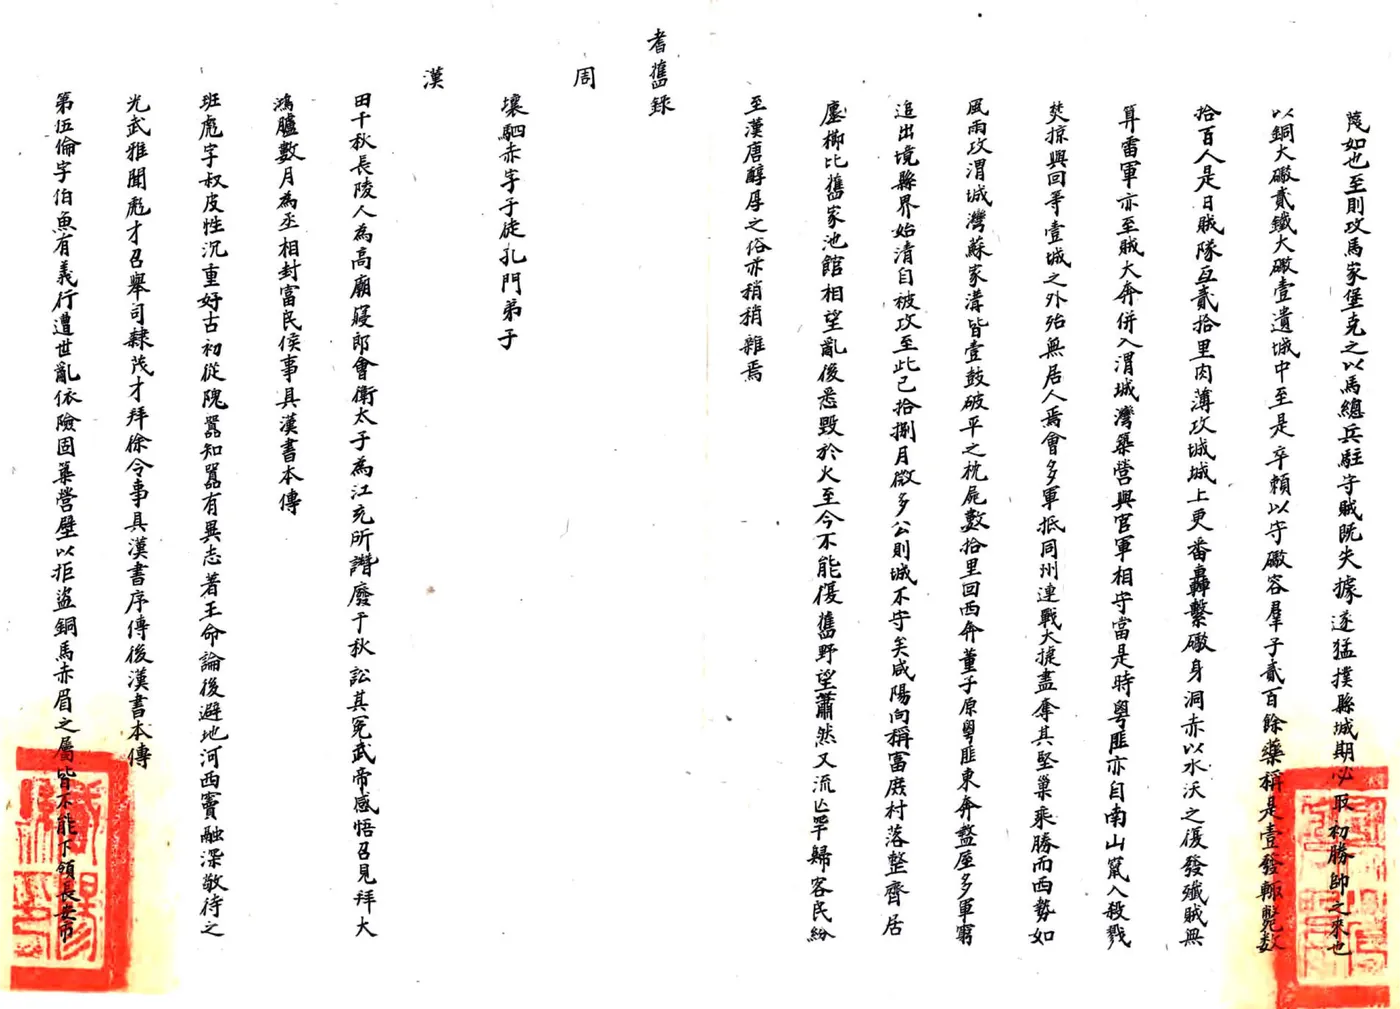 蔑如也至則攻馬家堡克之以馬總兵駐守賊既失據遂猛撲縣城期必取初勝帥之來也
以銅大礮貳鐵大礮壹遺城中至是卒賴以守礮容羣子貳百餘藥稱是壹發輒斃數
拾百人是日賊隊亙貳拾里肉薄攻城城上更番轟擊礮身洞赤以水沃之復發殲賊無
算雷軍亦至賊大奔併入渭城灣築營與官軍相守當是時粵匪亦自南山竄入殺戮
焚掠與回等壹城之外殆無居人焉會多軍抵同州連戰大捷盡奪其堅巢乘勝而西勢如
風雨攻渭城灣蘇家溝皆壹鼓破平之枕屍數拾里回西奔董子原粵匪東奔盩厔多軍窮
追出境縣界始清自被攻至此已拾捌月微多公則城不守矣咸陽向稱富庶村落整齊居
廛櫛比舊家池館相望亂後悉毀於火至今不能復舊野望蕭然又流亡罕歸客民紛
至漢唐醇厚之俗亦稍稍雜焉
耆舊錄
周
壤駟赤字子徒孔門弟子
漢
田千秋長陵人為高廟寢郎會衛太子為江充所譖廢千秋訟其冤武帝感悟召見拜大
鴻臚數月為丞相封富民侯事具漢書本傳
班彪字叔皮性沉重好古初從隗囂知囂有異志著王命論後避地河西竇融深敬待之
光武雅聞彪才召舉司隸茂才拜徐令事具漢書序傳後漢書本傳
第伍倫字伯魚有義行遭世亂依險固築營壁以拒盜銅馬赤眉之屬皆不能下領長安市